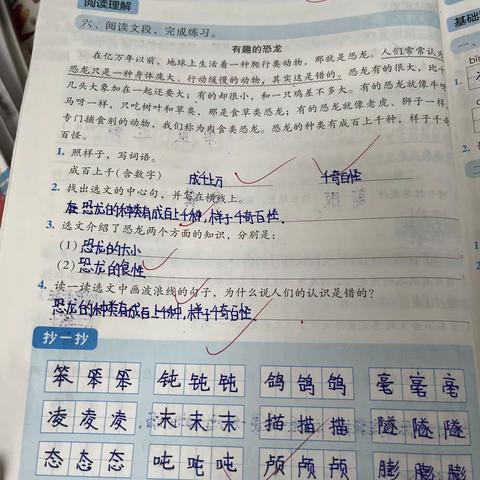 阅读理解
六、阅读文段，完成练习。
有趣的恐龙
在亿万年以前，地球上生活着一种爬行类动物，那就是恐龙。人们常常认为
恐龙只是一种身体庞大、行动缓慢的动物，其实这是错的。恐龙有的很大，比十
几头大象加在一起还要大；有的却很小，和一只鸡差不多大。有的恐龙就像牛
马呀一样，只吃树叶和草类，那是食草类恐龙；有的恐龙就像老虎、狮子一样
专门捕食别的动物，我们称为肉食类恐龙。恐龙的种类有成百上千种，样子千奇
百怪。
1. 照样子，写词语。
成百上千(含数字) 成千上万 千奇百怪
2. 找出选文的中心句，并写在横线上。
恐龙的种类有成百上千种，样子千奇百怪.
3. 选文介绍了恐龙两个方面的知识，分别是：
(1) 恐龙的大小
(2) 恐龙的食性
4. 读一读选文中画波浪线的句子，为什么说人们的认识是错的？
恐龙的种类有成百上千种，样子千奇百怪.
抄一抄
笨 笨 笨 钝 钝 钝 鸽 鸽 鸽 毫 毫 毫
凌 凌 凌 末 末 末 描 描 描 隧 隧 隧
态 态 态 吨 吨 吨 颅 颅 颅 膨 膨 膨
基础